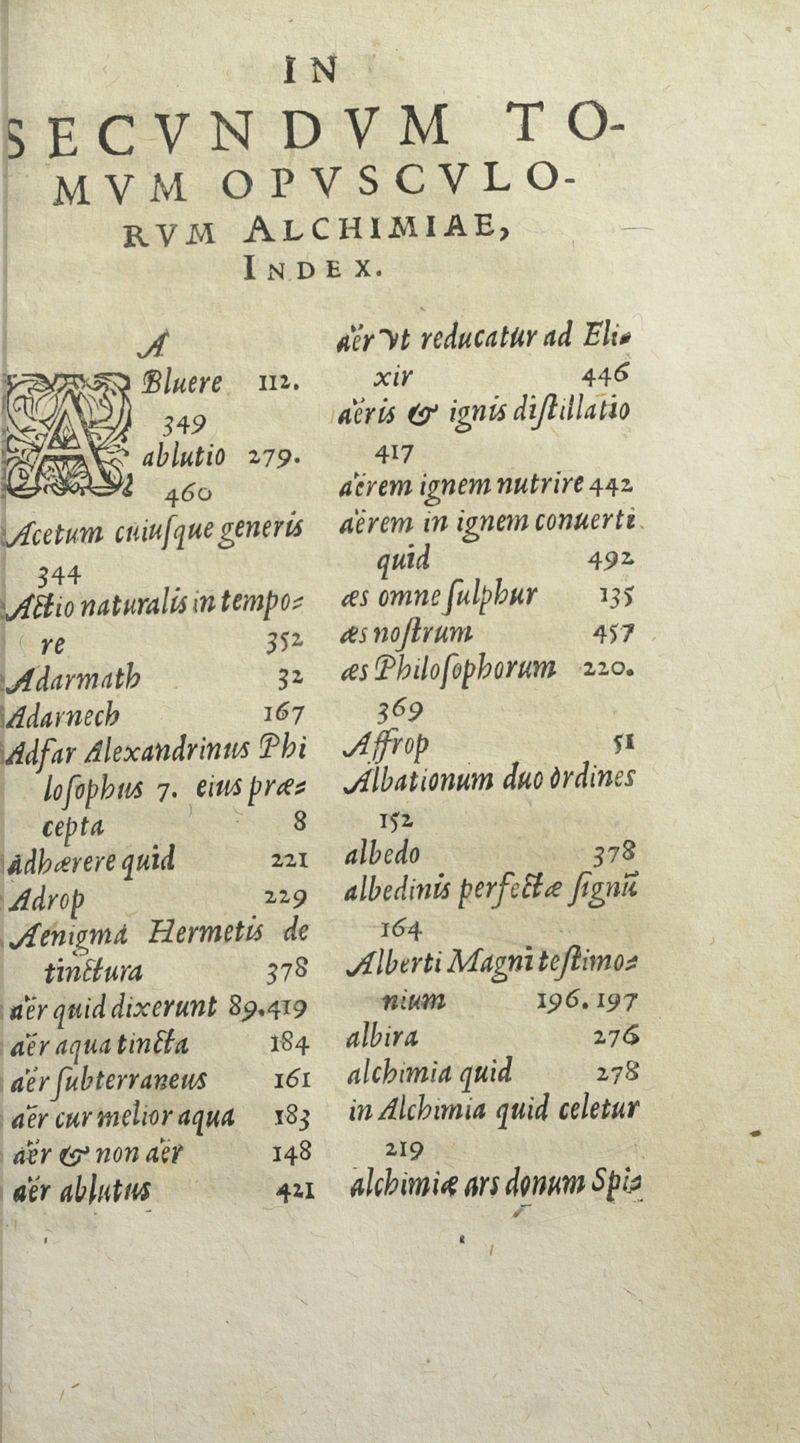 IN
SECVNDVM TO-
MVM OPVSCVLO-
RVM ALCHIMIAE,
INDEX.
A
ABluere 112.
349
ablutio 279.
460
Acetum cuiuſque generis
344
Actio naturalis in tempo=
re 352
Adarmath 32
Adarnech 167
Adfar Alexandrinus Phi
loſophus 7. eius præ=
cepta 8
Adhærere quid 221
Adrop 229
Aenigma Hermetis de
tinctura 378
aër quid dixerunt 89.419
aër aqua tincta 184
aër ſubterraneus 161
aër cur melior aqua 183
aër & non aër 148
aër ablutus 421
aër vt reducatur ad Eli=
xir 446
aëris & ignis diſtillatio
417
aërem ignem nutrire 442
aërem in ignem conuerti
quid 492
æs omne ſulphur 135
æs noſtrum 457
æs Philoſophorum 220.
369
Affrop 51
Albationum duo òrdines
152
albedo 378
albedinis perfectæ ſignũ
164
Alberti Magni teſtimo=
nium 196.197
albira 276
alchimia quid 278
in Alchimia quid celetur
219
alchimiæ ars donum Spi=
r